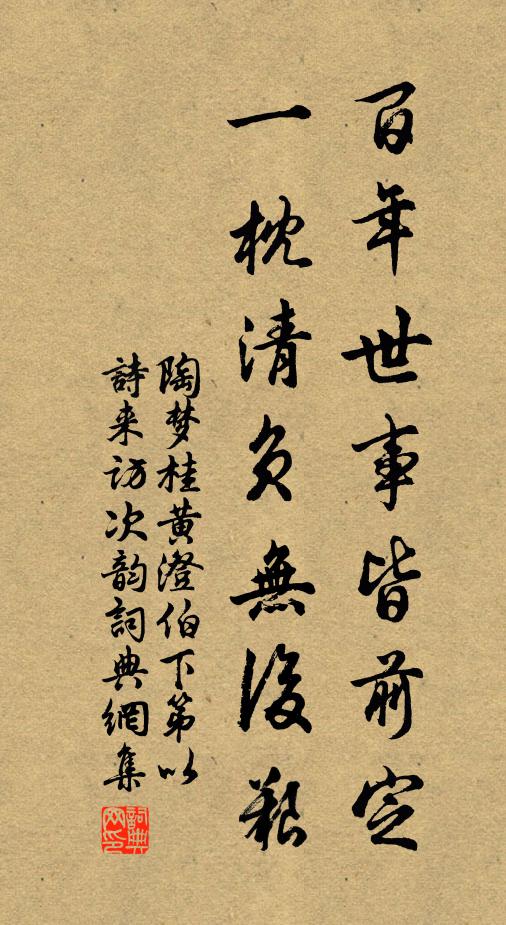 百年世事皆前定
一枕清無後艱
陶梦桂黄澄伯下第以
詩来访次韵詞典網集
詞典网印